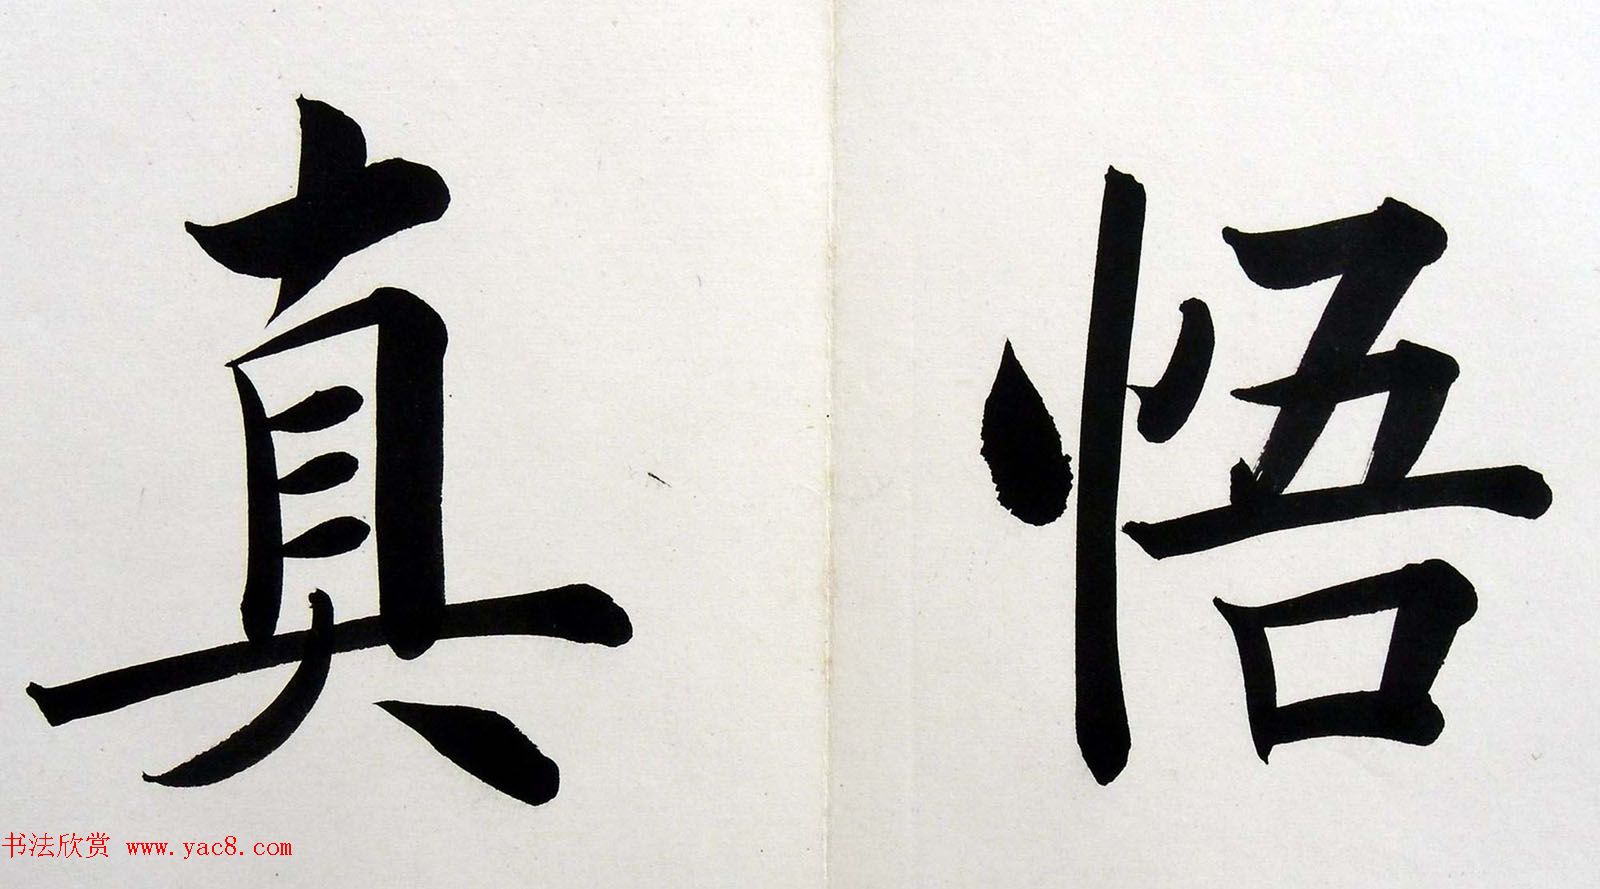 悟真
书法欣赏 www.yac8.com